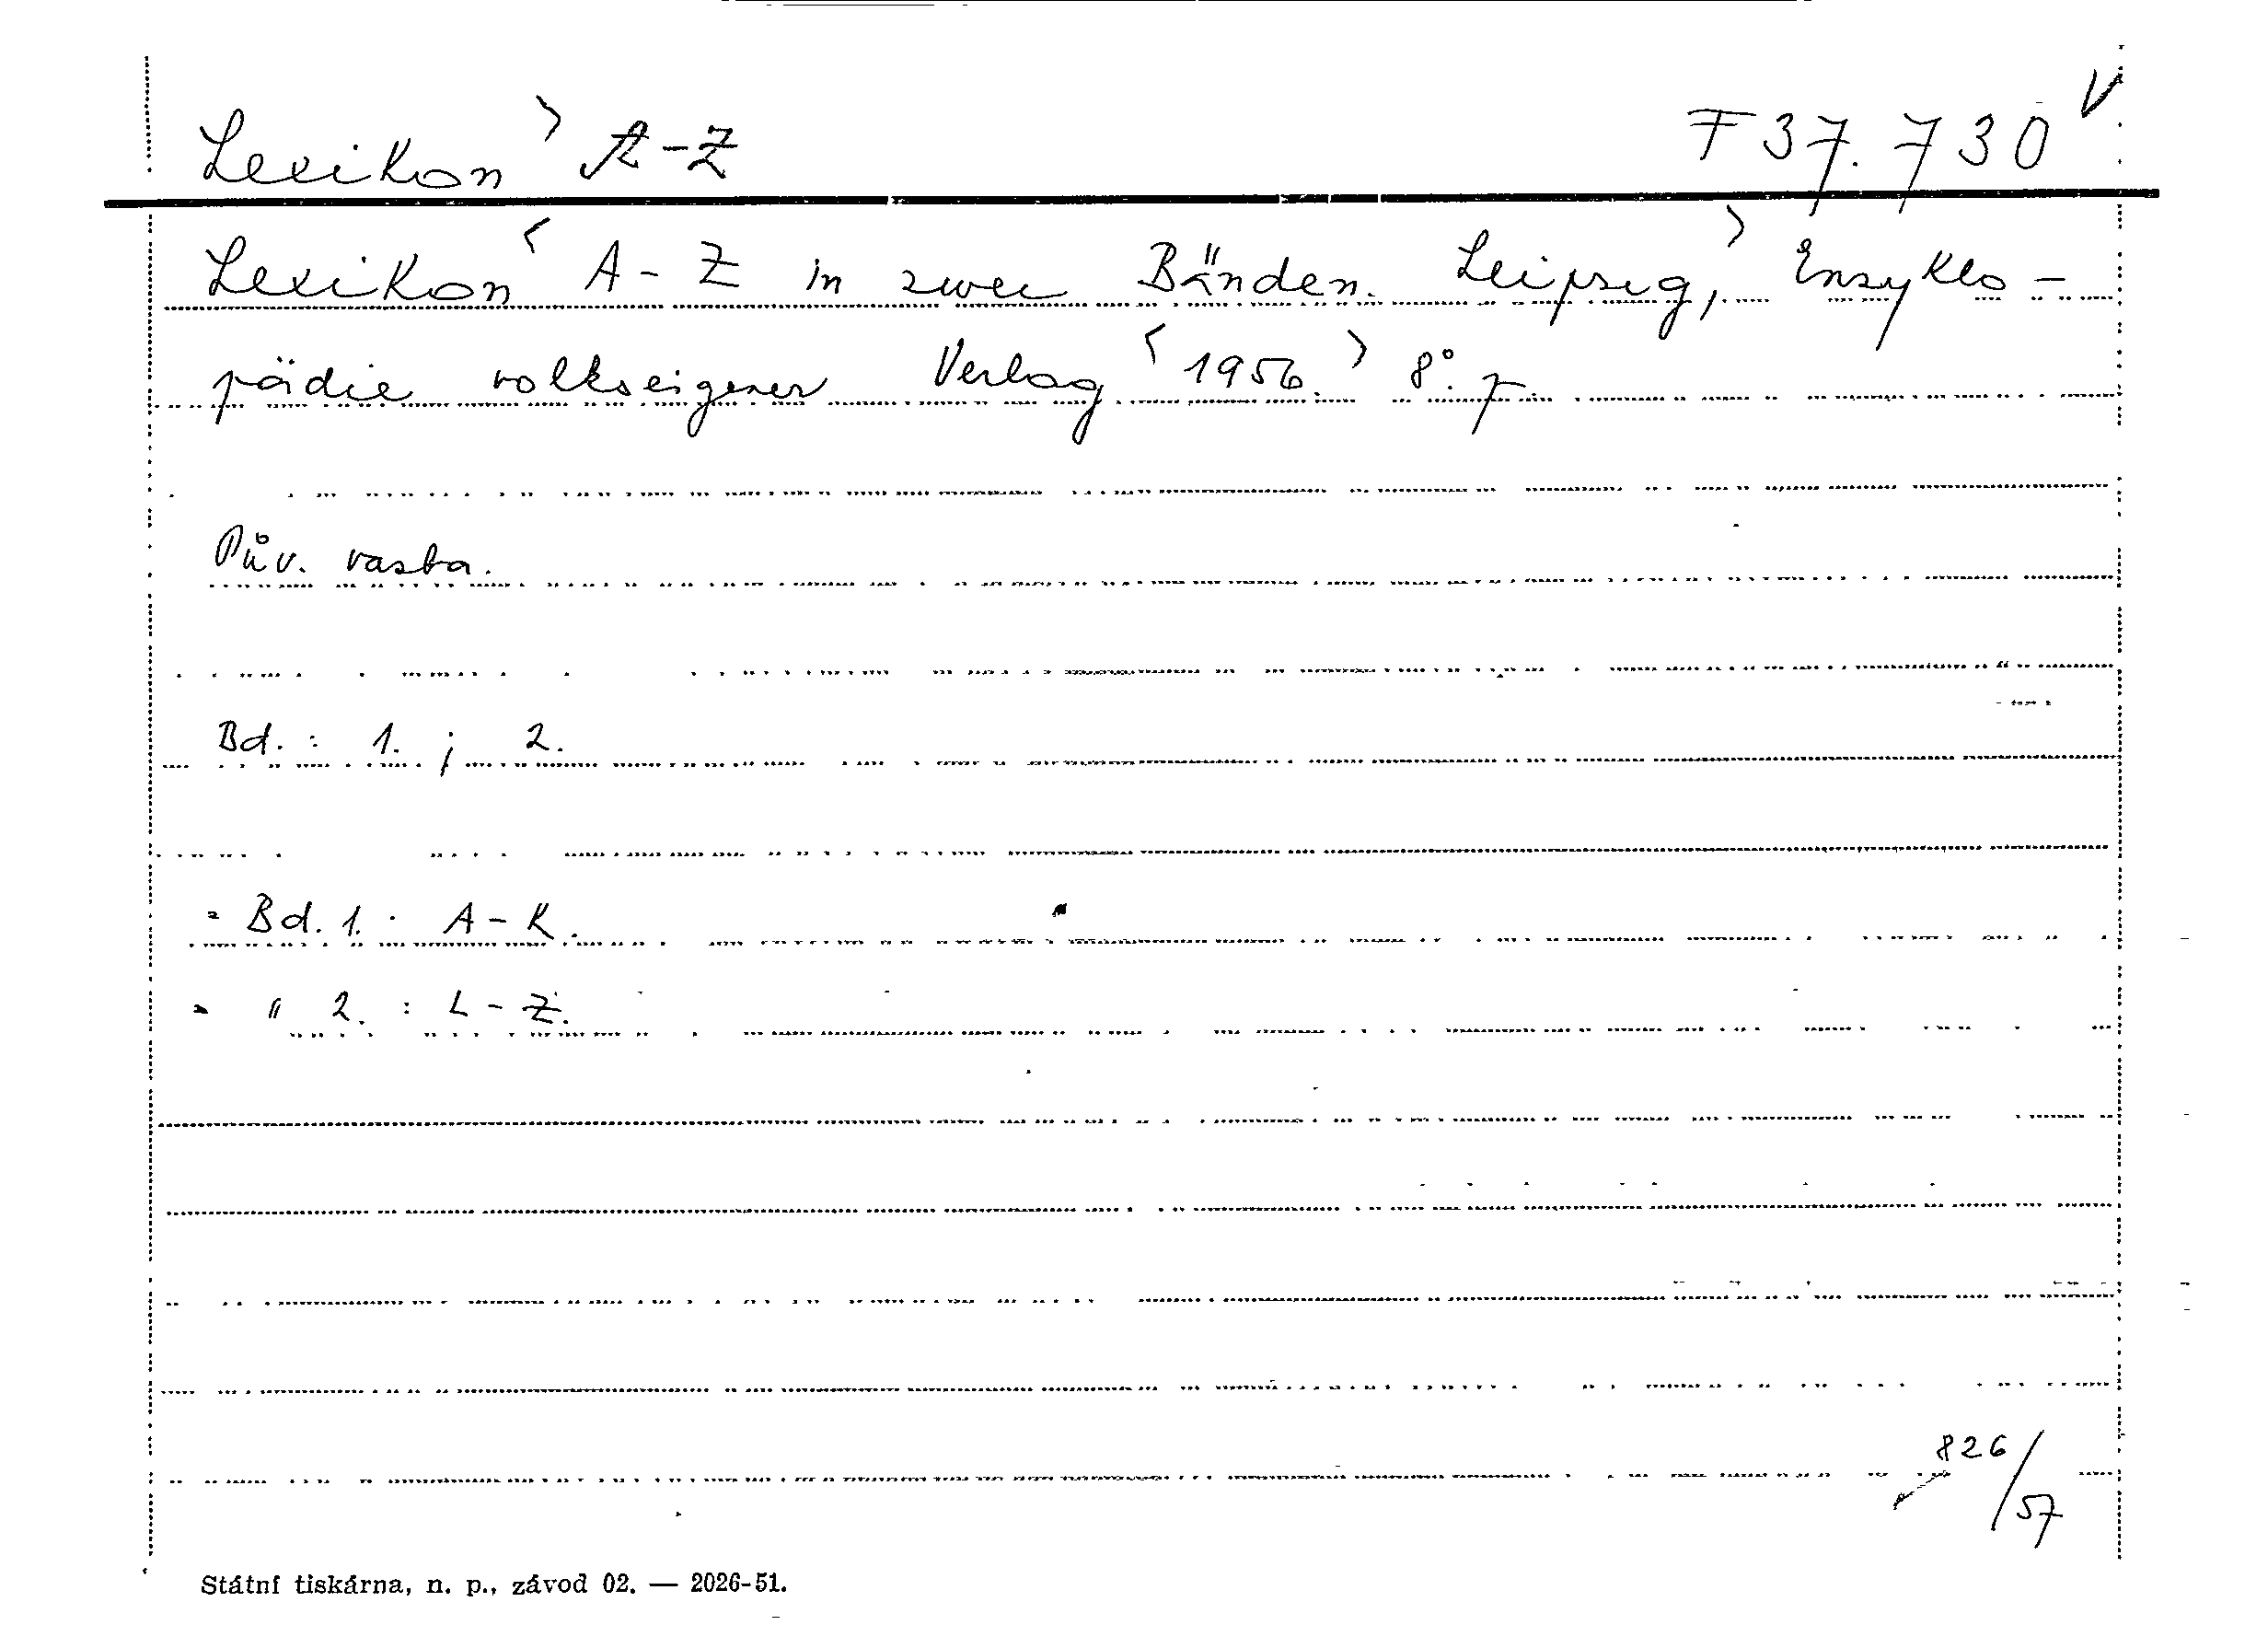 Lexikon > A-Z F 37.730 V
Lexikon < A-Z in zwei Bänden. Leipzig, > Enzyklo-
pädie volkseigener Verlag < 1956. > 8°. 7.
Pův. vazba.
Bd.: 1. ; 2.
= Bd. 1. : A-K.
= " 2. : L-Z.
826/57
Státní tiskárna, n. p., závod 02. — 2026-51.